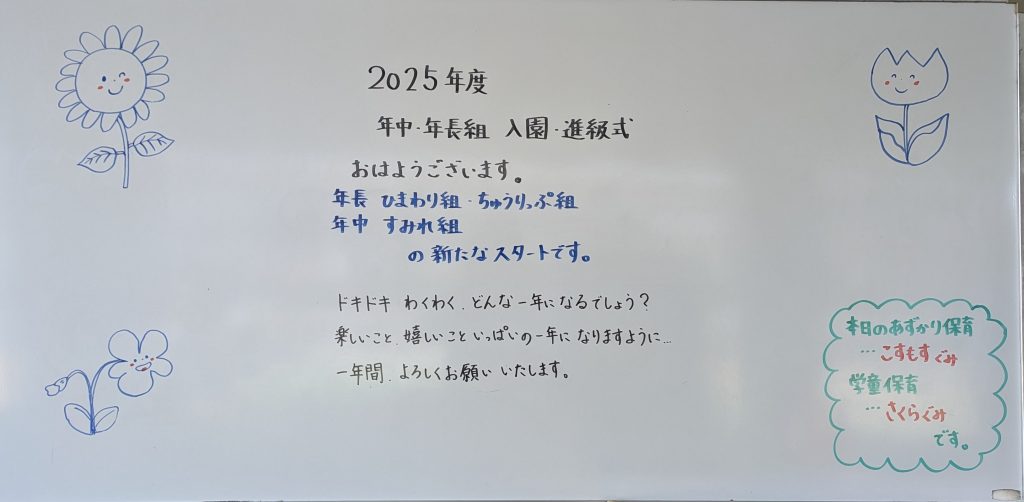 2025年度
年中・年長組 入園・進級式
おはようございます。
年長 ひまわり組・ちゅうりっぷ組
年中 すみれ組
の新たなスタートです。
ドキドキ わくわく、どんな一年になるでしょう?
楽しいこと、嬉しいこといっぱいの一年になりますように…
一年間、よろしくお願いいたします。
本日のあずかり保育
…こすもすぐみ
学童保育
…さくらぐみ
です。